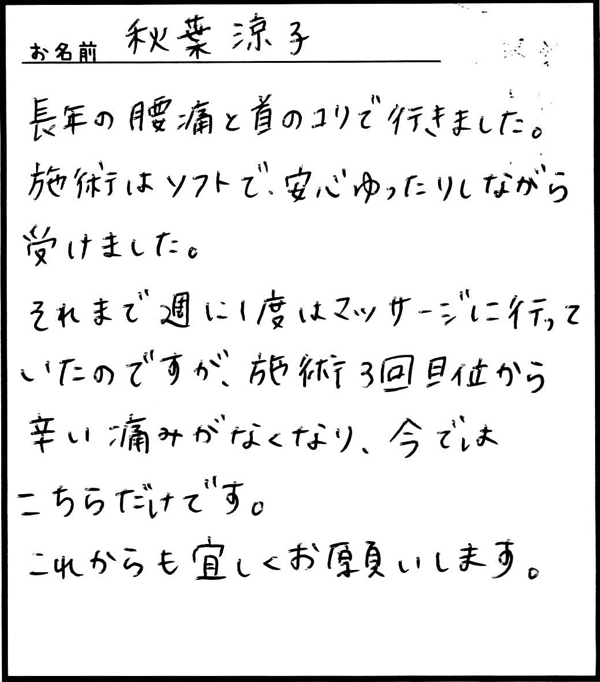 お名前 秋葉涼子
長年の腰痛と首のコリで行きました。
施術はソフトで、安心ゆったりしながら
受けました。
それまで週に1度はマッサージに行って
いたのですが、施術3回目位から
辛い痛みがなくなり、今では
こちらだけです。
これからも宜しくお願いします。